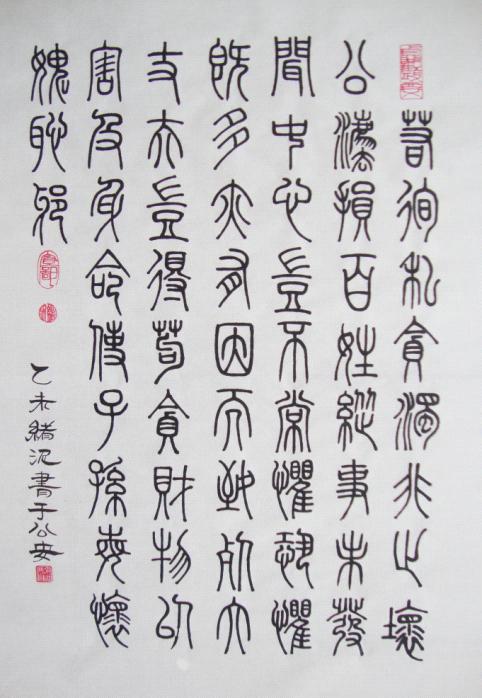 若徇私貪濁非止壞
公灋損百姓縱事未發
聞中心豈不常懼恐懼
既多亦有因而致死大
丈夫豈得苟貪財物以
害及身命使子孫每懷
愧恥耶
乙未緒泥書于公安